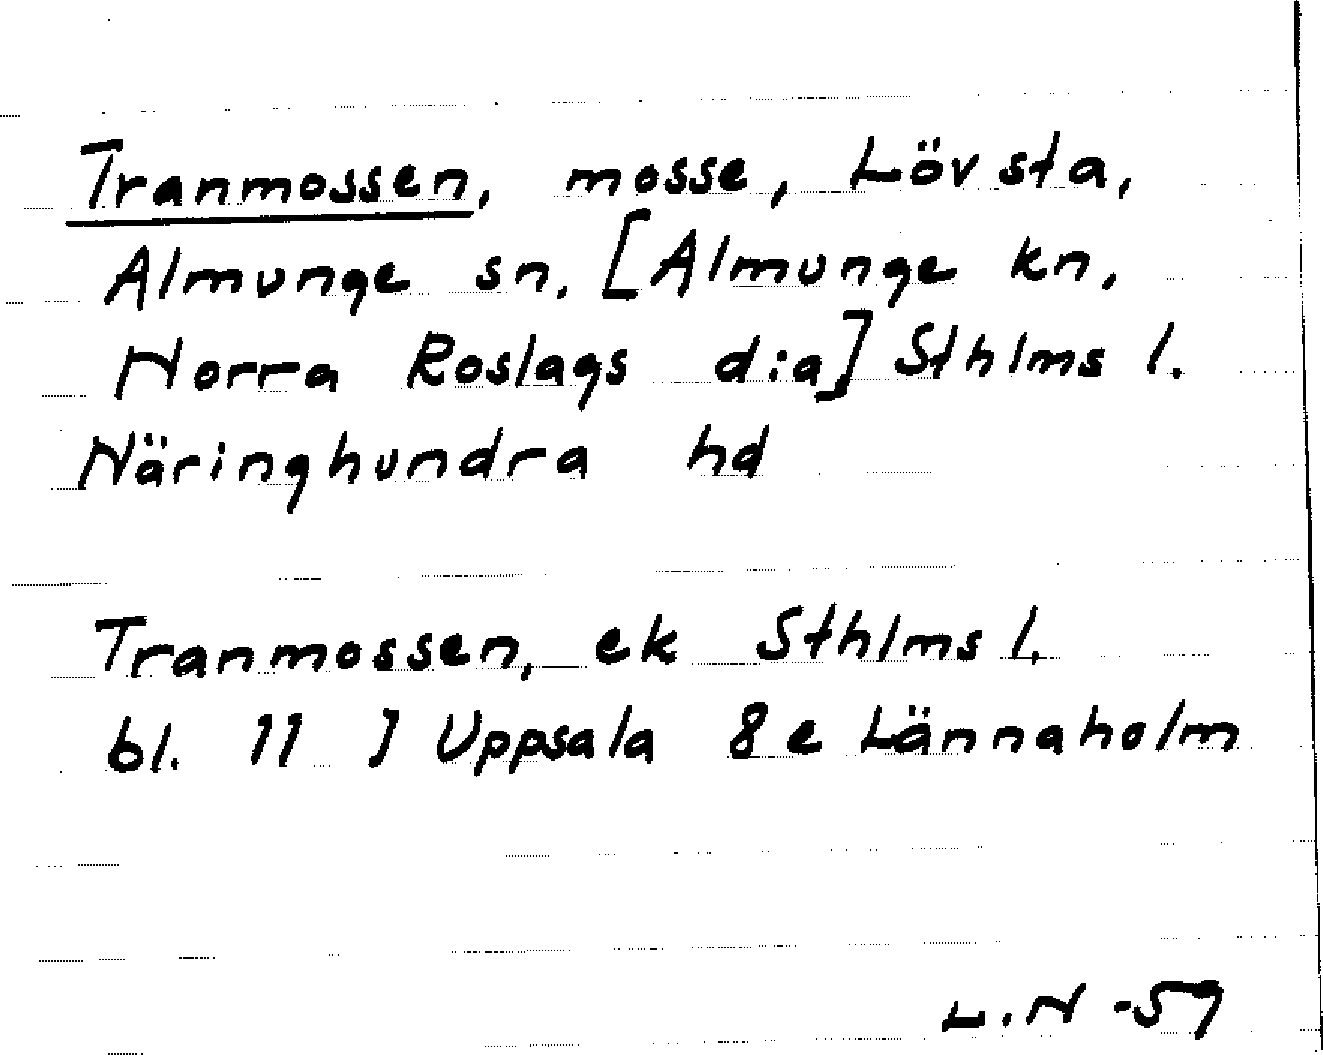 Tranmossen, mosse, Lövsta,
Almunge sn. [Almunge kn,
Norra Roslags d:a] Sthlms l.
Näringhundra hd
Tranmossen, ek Sthlms l.
bl. 11 J Uppsala 8e Lännaholm
L.N -59